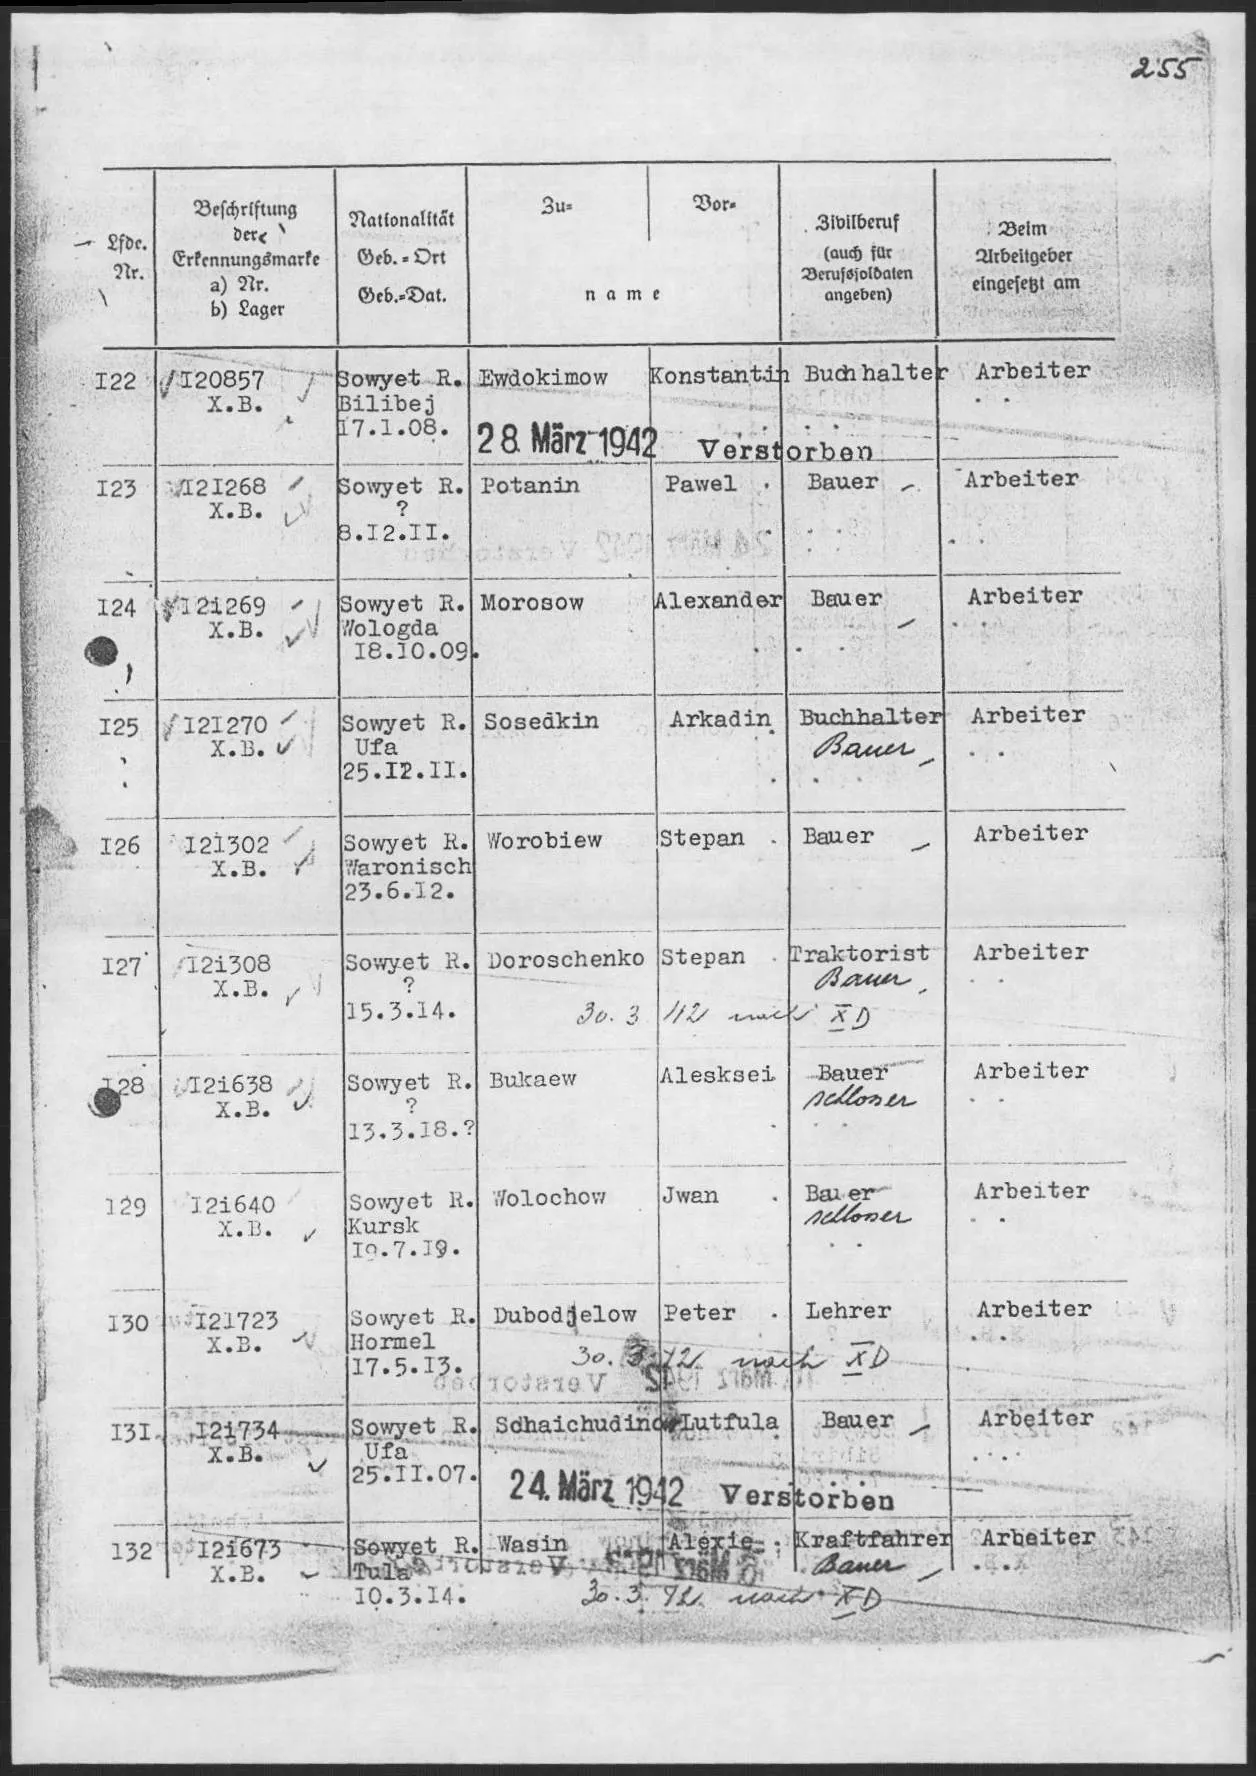 255
Lfde. Nr.
Beschriftung der Erkennungsmarke a) Nr. b) Lager
Nationalität Geb.=Ort Geb.=Dat.
Zu= Vor=
name
Zivilberuf (auch für Berufssoldaten angeben)
Beim Arbeitgeber eingesetzt am
I22 I20857 Sowyet R. Ewdokimow Konstantin Buchhalter Arbeiter
X.B. Bilibej
17.1.08.
28. März 1942 Verstorben
I23 I2I268 Sowyet R. Potanin Pawel Bauer Arbeiter
X.B. ?
8.I2.II.
I24 I2i269 Sowyet R. Morosow Alexander Bauer Arbeiter
X.B. Wologda
I8.I0.09.
I25 I2I270 Sowyet R. Sosedkin Arkadin Buchhalter Arbeiter
X.B. Ufa Bauer
25.I2.II.
I26 I2i302 Sowyet R. Worobiew Stepan Bauer Arbeiter
X.B. Waronisch
23.6.I2.
I27 I2i308 Sowyet R. Doroschenko Stepan Traktorist Arbeiter
X.B. ? Bauer
I5.3.14. 30.3 42 nach XD
I28 I2i638 Sowyet R. Bukaew Alesksei Bauer Arbeiter
X.B. ? schloser
I3.3.I8.?
I29 I2i640 Sowyet R. Wolochow Jwan Bauer Arbeiter
X.B. Kursk schloser
I9.7.I9.
I30 I21723 Sowyet R. Dubodjelow Peter Lehrer Arbeiter
X.B. Hormel
I7.5.I3. 30.3.42. nach XD
I3I I2i734 Sowyet R. Schaichudinow Lutfula Bauer Arbeiter
X.B. Ufa
25.II.07.
24. März 1942 Verstorben
I32 I2i673 Sowyet R. Wasin Alexie Kraftfahrer Arbeiter
X.B. Tula Bauer
I0.3.I4. 30.3.42. nach XD